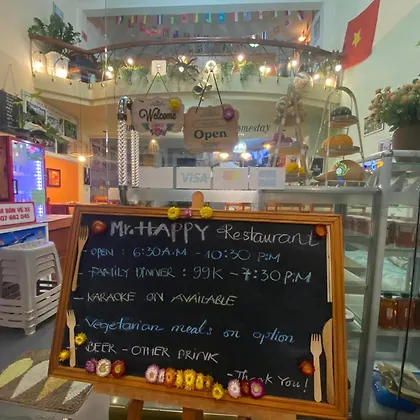 Welcome
Open
Homestay
VISA
BÁN VÉ XE
Mr.HAPPY Restaurant
- OPEN : 6:30 A.M - 10:30 P.M
- FAMILY DINNER : 99K - 7:30 P.M
- KARAOKE ON AVAILABLE
- Vegetarian meals on option
- BEER - OTHER DRINK
- Thank You!